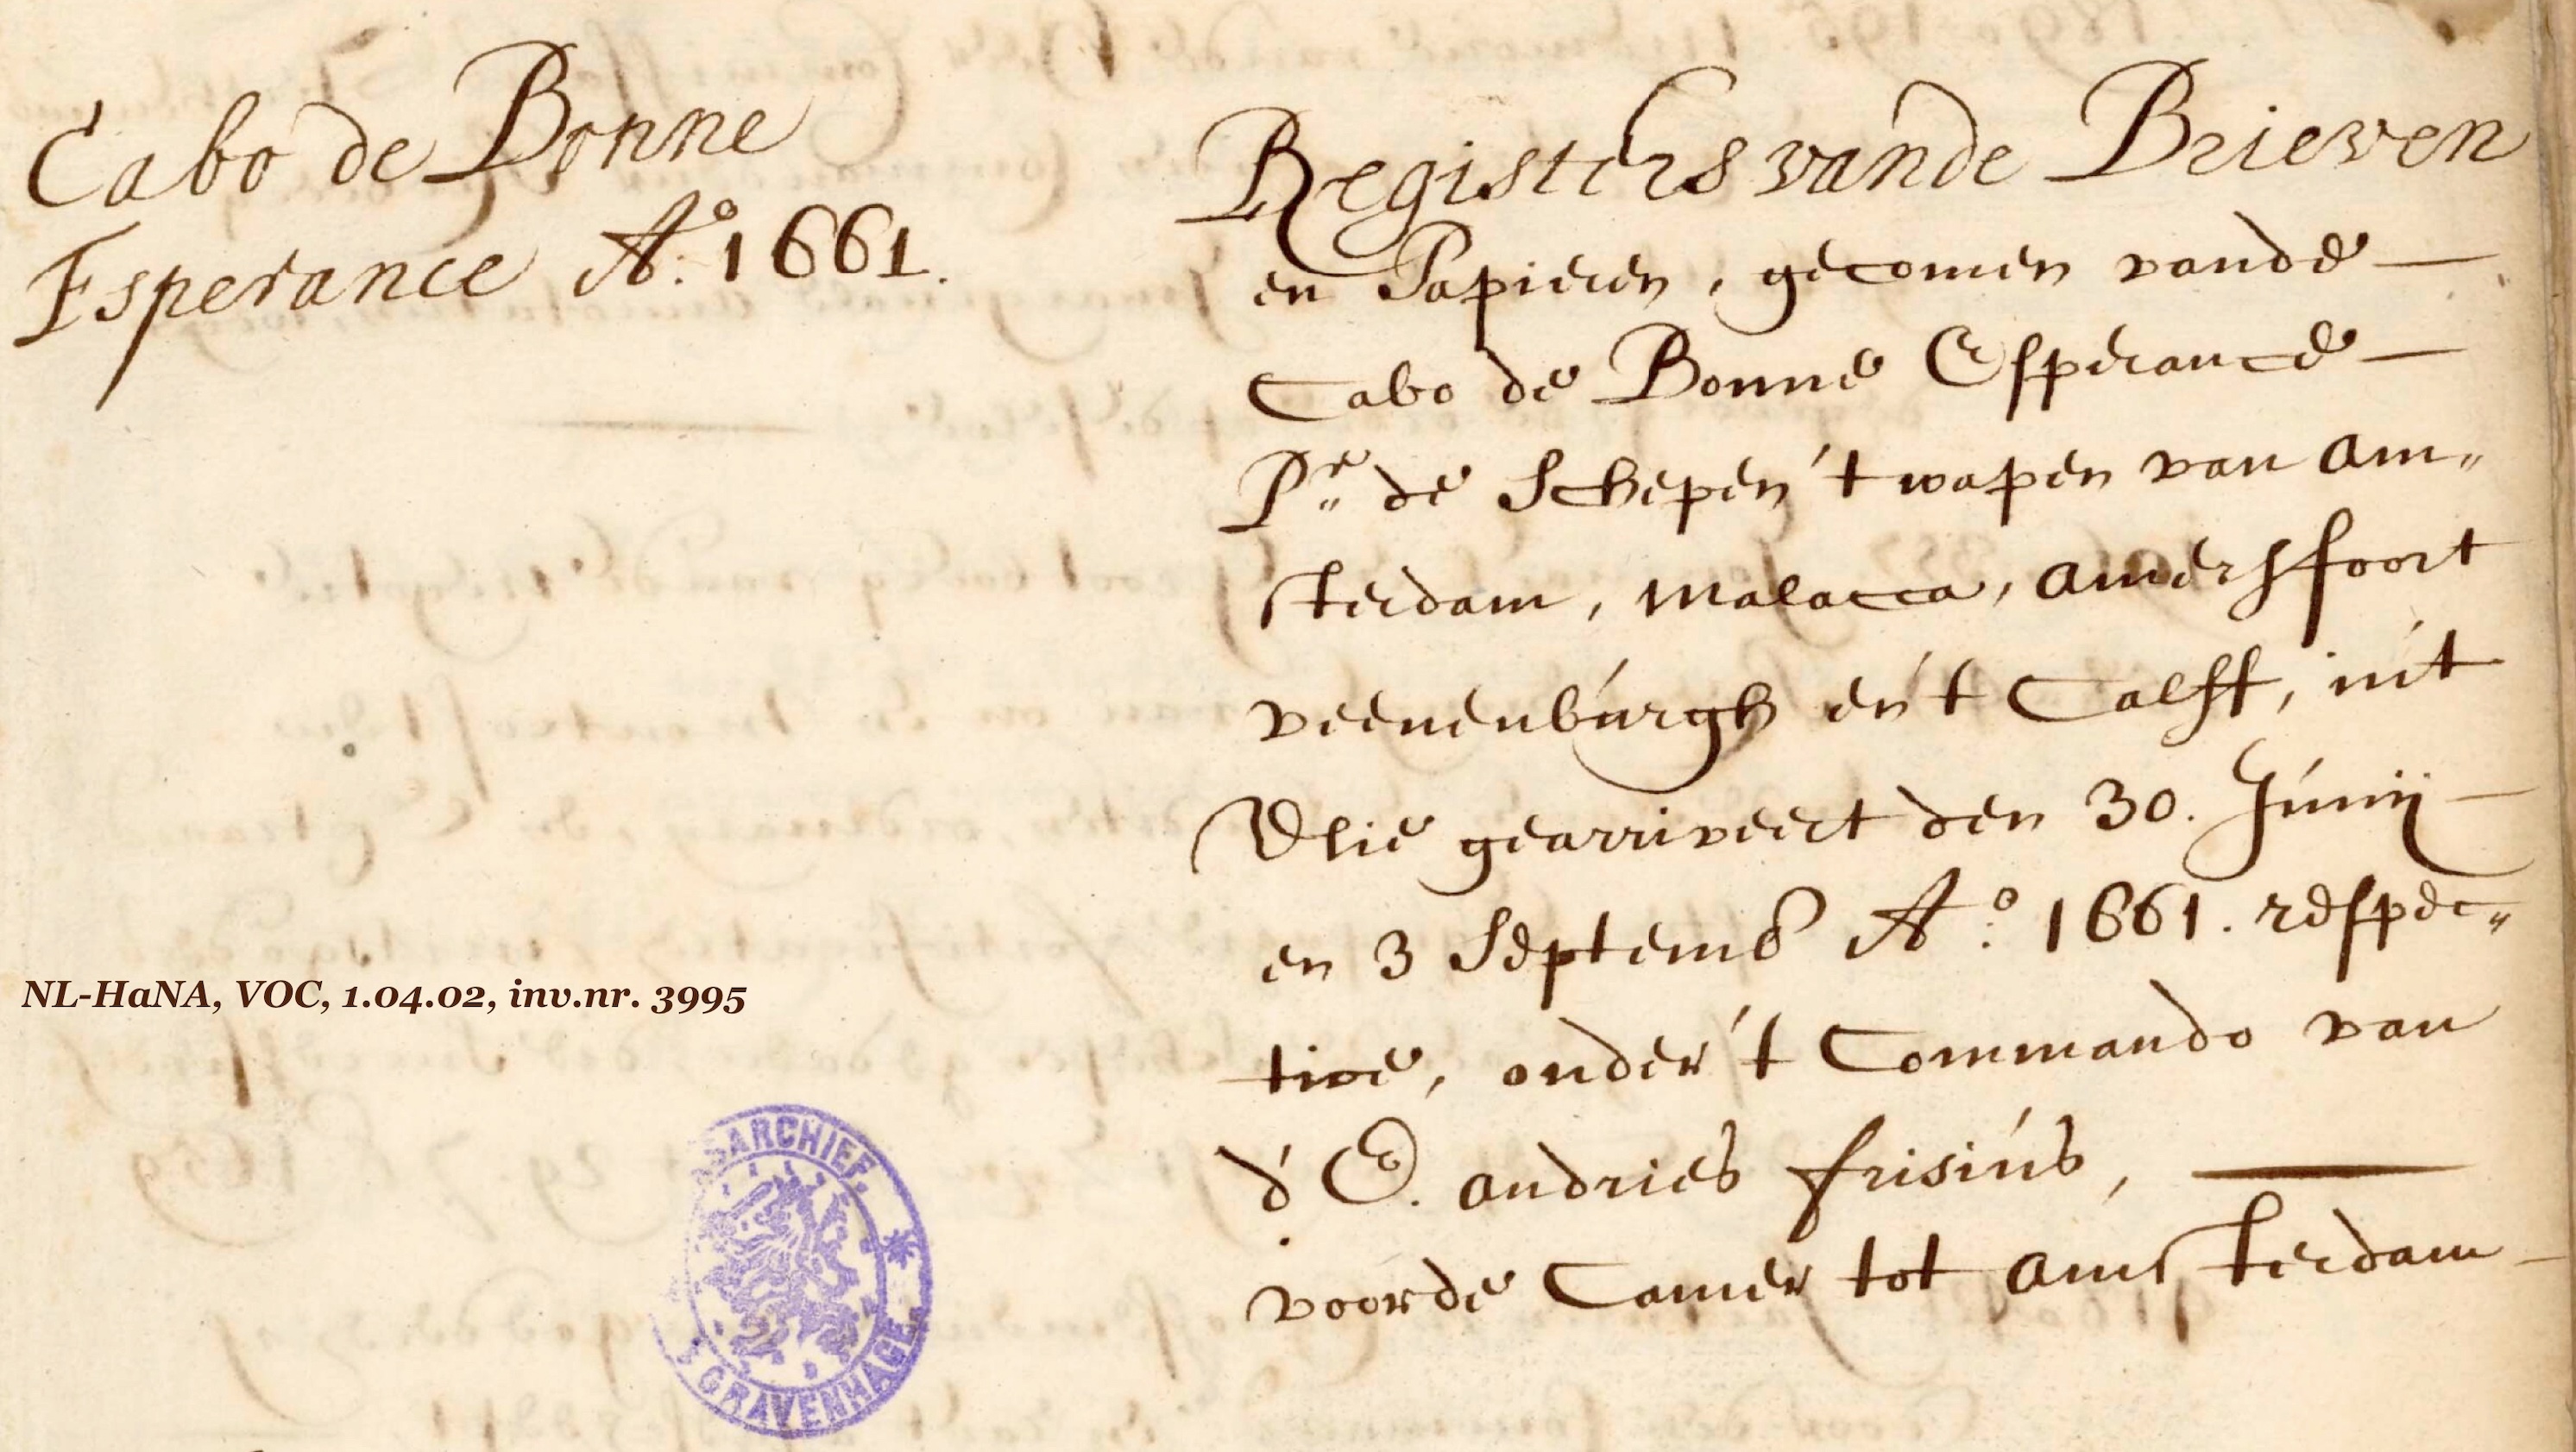 Cabo de Bonne
Esperance A:o 1661.
Registers vande Brieven
en Papieren, gecomen vande —
Cabo de Bonne Esperance —
P:r de Schepen 't wapen van Am„
sterdam, Malacca, Amersfoort
veenenburgh en 't Calff, int
Vlie gearriveert den 30. Junij —
en 3 Septemb A:o 1661. respec„
tive, onder 't Commando van
d' E. Andries frisius, —
voorde Camer tot Amsterdam —
NL-HaNA, VOC, 1.04.02, inv.nr. 3995
SARCHIEF
GRAVENHAGE